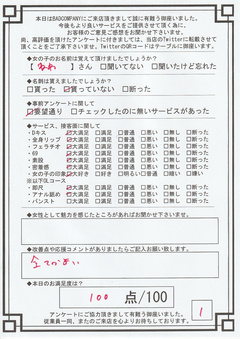 本日はBADCOMPANYにご来店頂きまして誠に有難う御座いました。
今後もより良いサービスをご提供させて頂く為に、
お客様のご意見ご感想をお聞かせ下さい。
尚、高評価を頂けたアンケートに付きましては、当店のTwitterに転載させて
頂くことをご了承下さいませ。TwitterのQRコードはテーブルに御座います。
◆女の子のお名前は覚えて頂けましたでしょうか?
【 】さん □聞いてない □聞いたけど忘れた
◆名刺は貰えましたでしょうか?
□貰った □貰っていない □断った
◆事前アンケートに関して
□要望通り □チェックしたのに無いサービスがあった
◆サービス、接客面に関して
・Dキス □大満足 □満足 □普通 □悪い □無し □断った
・全身リップ □大満足 □満足 □普通 □悪い □無し □断った
・フェラチオ □大満足 □満足 □普通 □悪い □無し □断った
・69 □大満足 □満足 □普通 □悪い □無し □断った
・素股 □大満足 □満足 □普通 □悪い □無し □断った
・密着度 □大満足 □満足 □普通 □悪い □無し □断った
・女の子の印象 □大好き □好き □明るい □普通 □暗い □嫌い
※以下OLコース
・即尺 □大満足 □満足 □普通 □悪い □無し □断った
・アナル舐め □大満足 □満足 □普通 □悪い □無し □断った
・パンスト □大満足 □満足 □普通 □悪い □無し □断った
◆女性として魅力を感じたところがあればお聞かせ下さいませ。
◆改善点や応援コメントがありましたらご記入お願い致します。
◆本日のお満足度は?
100 点/100
アンケートにご協力頂きまして有難う御座いました。
従業員一同、またのご来店を心よりお待ちしております。
1